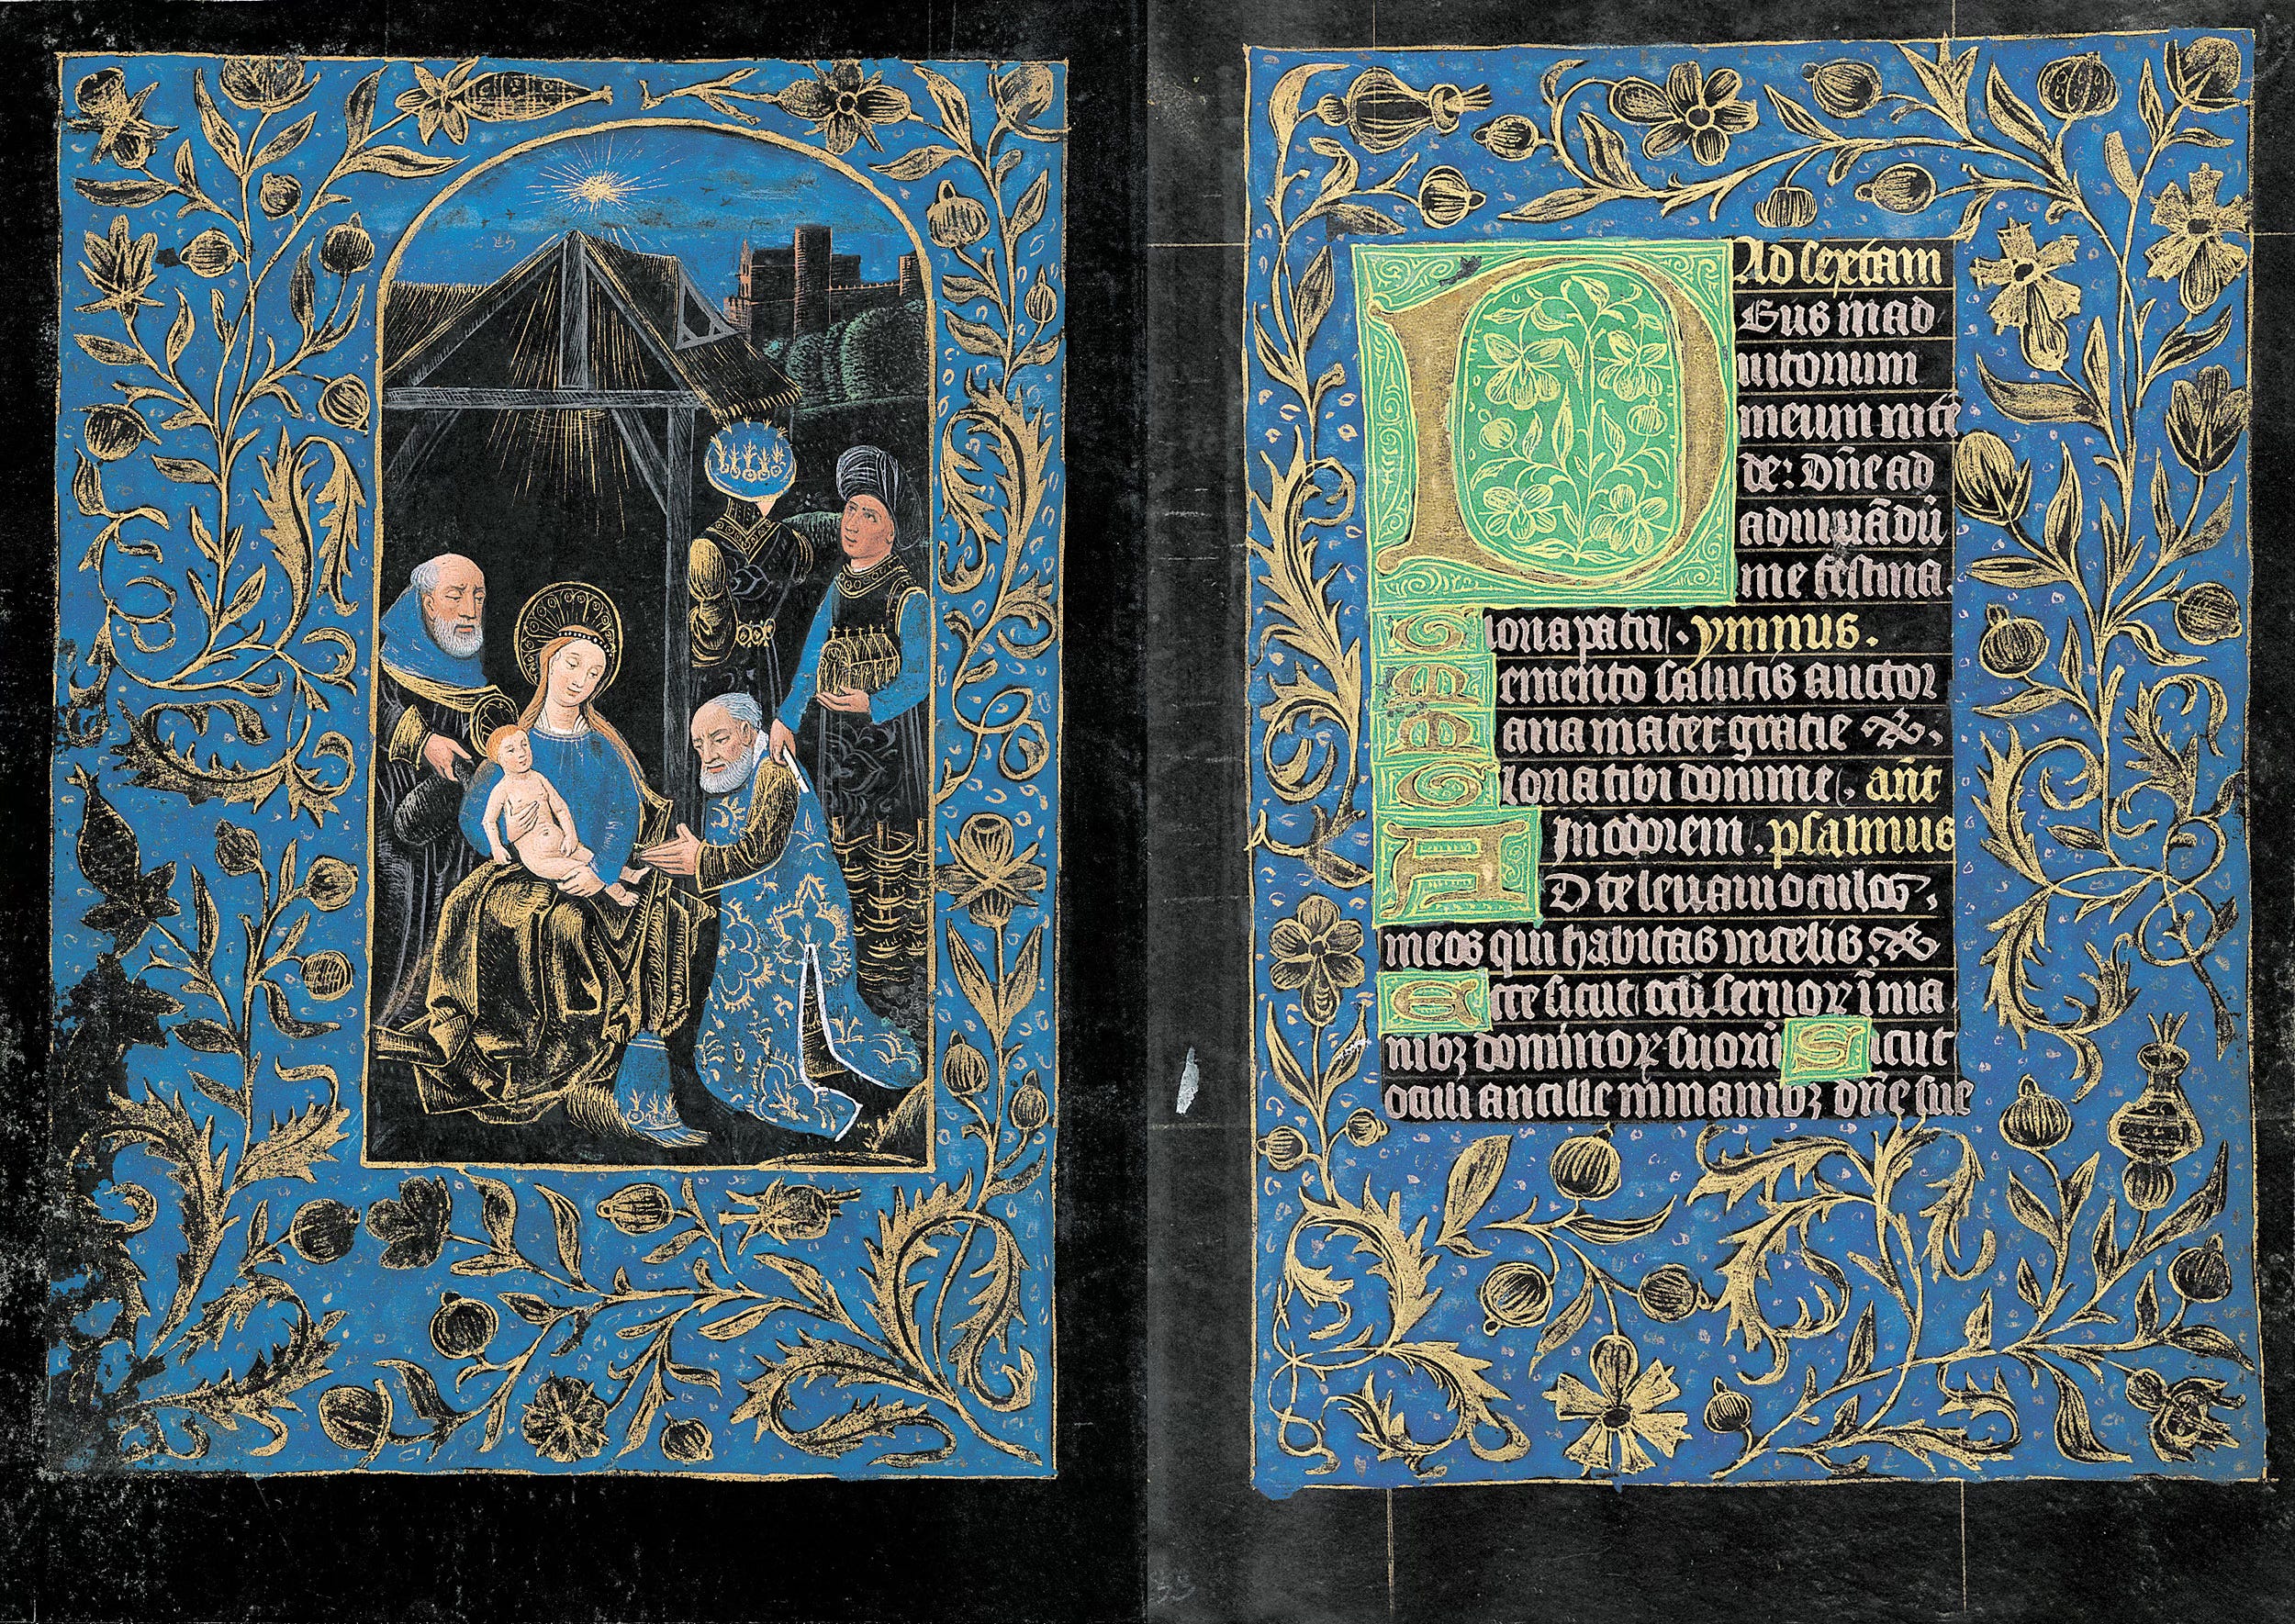 Ad sextam
Deus in ad
iutorium
meum inte̅
de: Dn̅e ad
adiuua̅du̅
me festina.
Gloria patri. ymnus.
Memento salutis auctor
Maria mater gratie ⁊c̅.
Gloria tibi domine. an̅t
In odorem. psalmus
AD te leuaui oculos
meos qui habitas in celis. ⁊c̅
Ecce sicut oculi seruoꝝ i̅ ma
nibꝫ dominoꝝ suoru̅ Sicut
oculi ancille in manibꝫ dn̅e sue